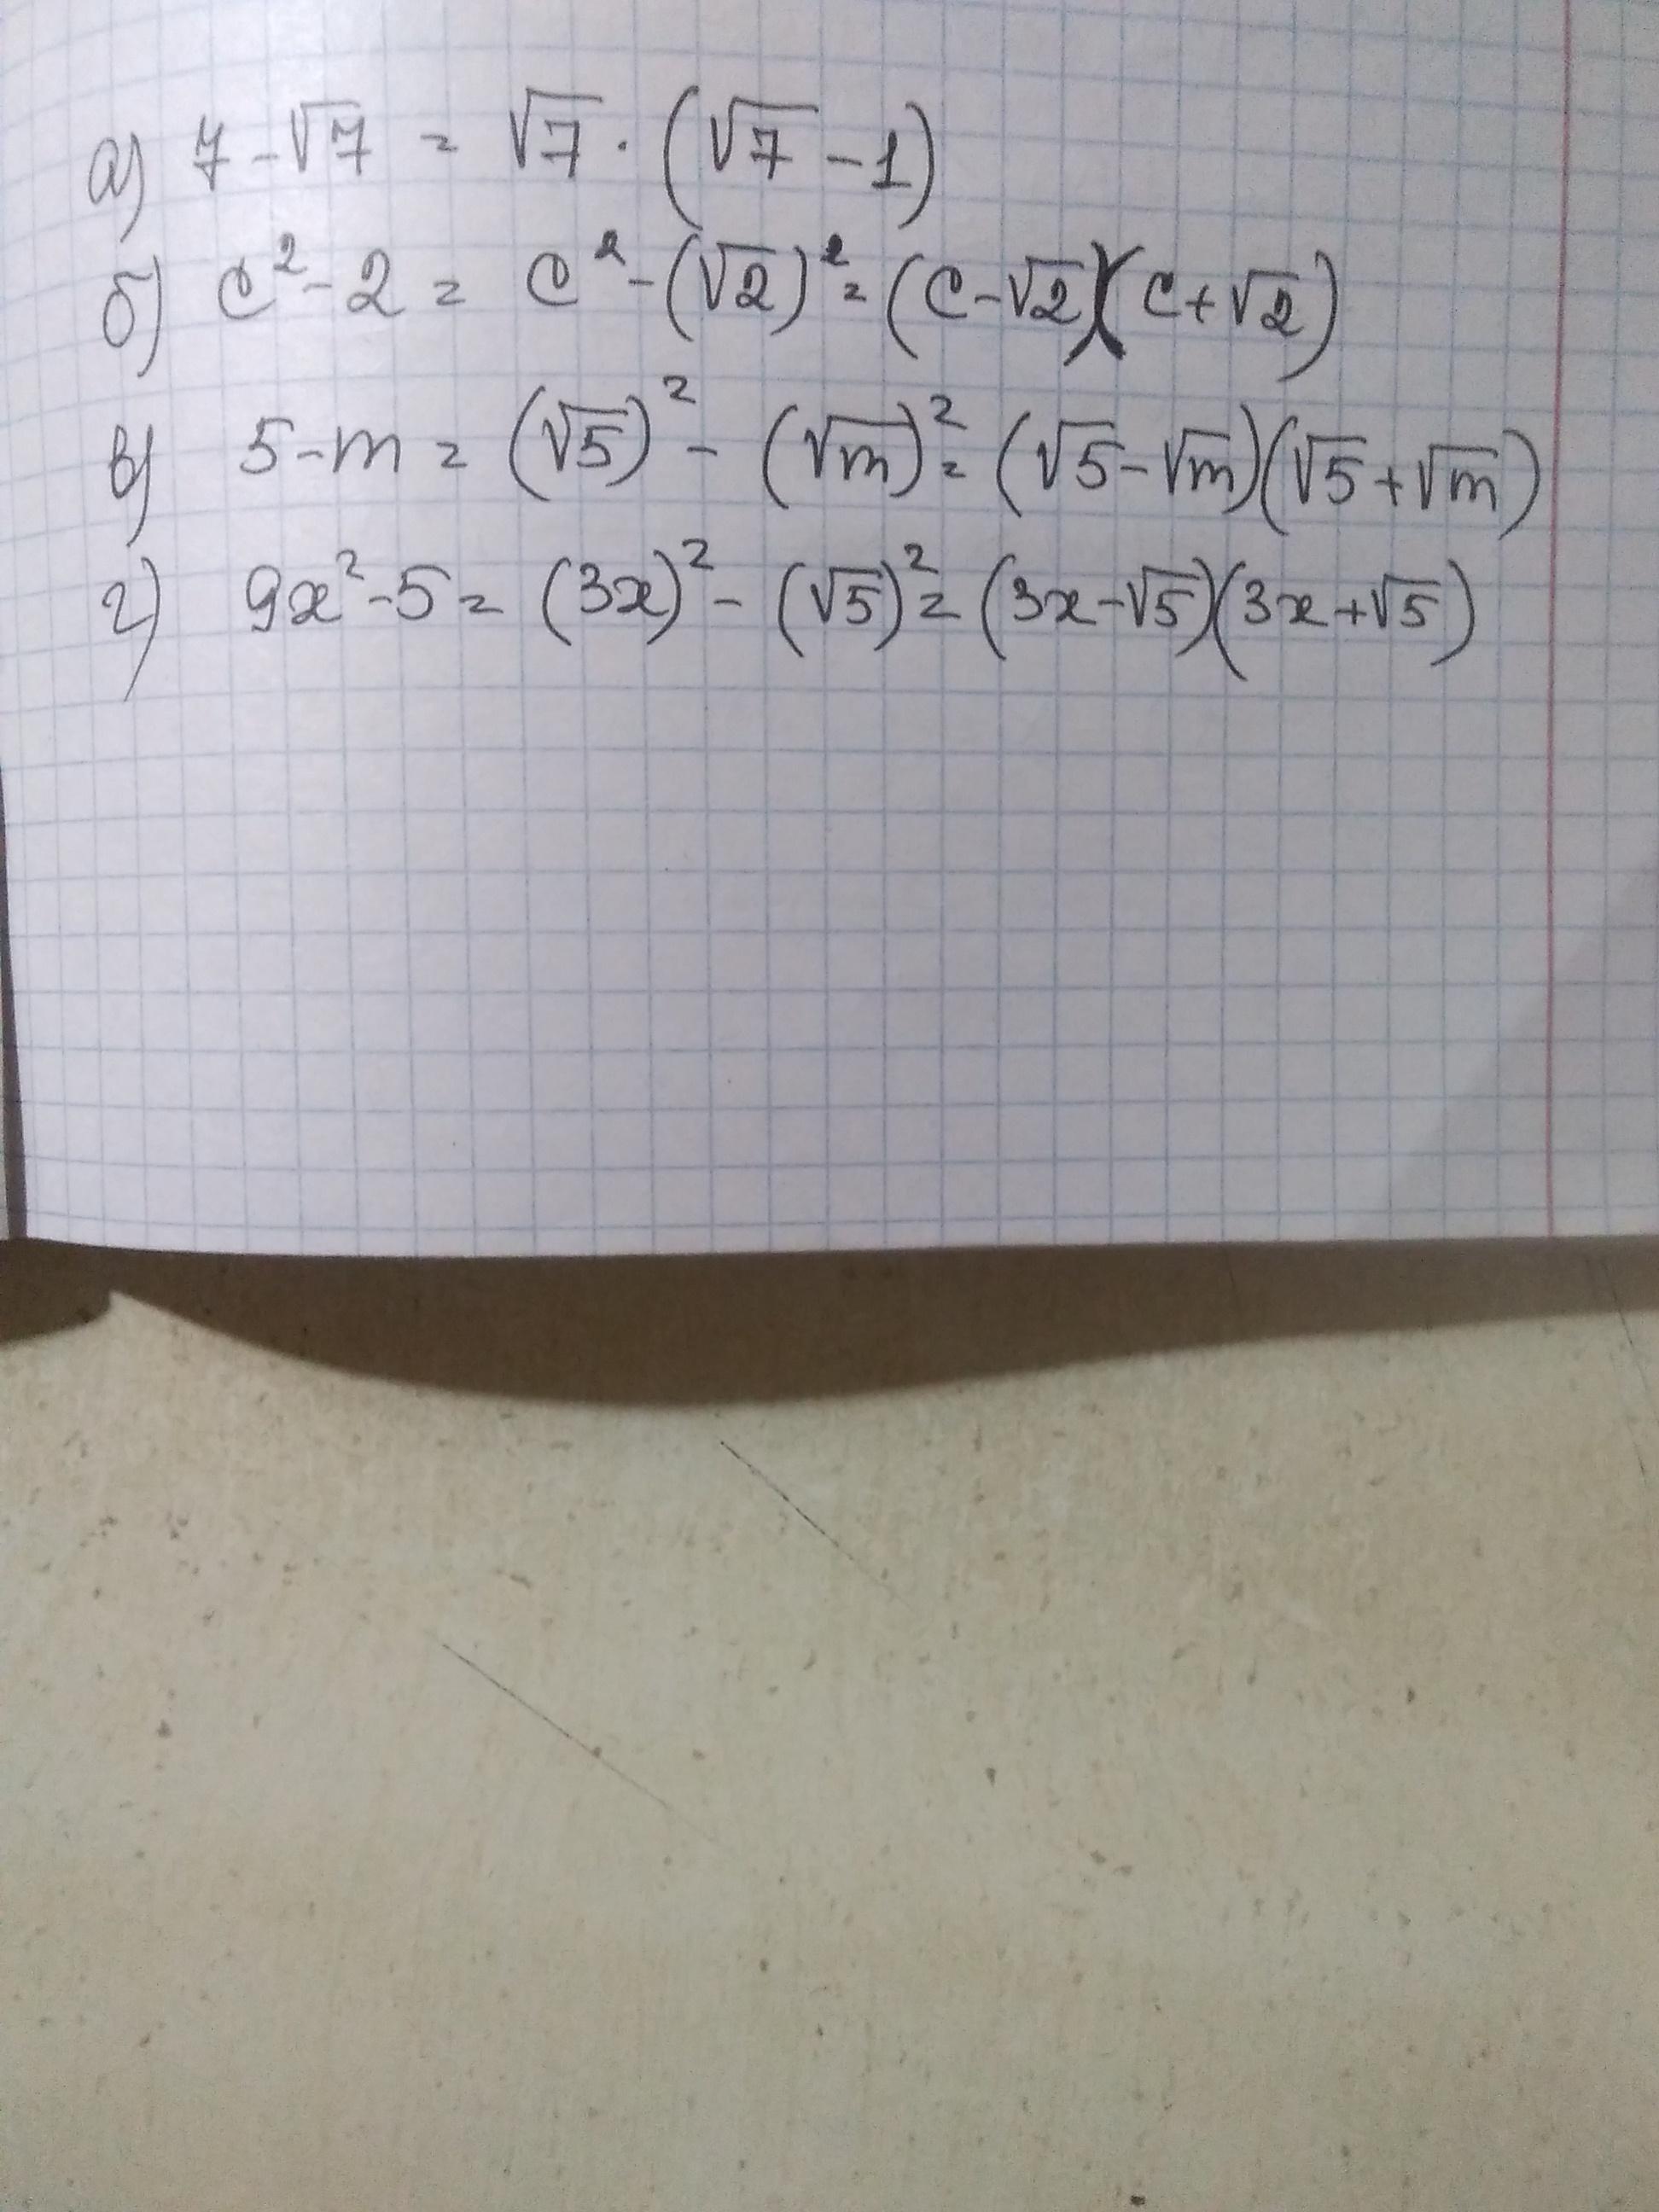 а) 7 - √7 = √7 · (√7 - 1)
б) c² - 2 = c² - (√2)² = (c - √2)(c + √2)
в) 5 - m = (√5)² - (√m)² = (√5 - √m)(√5 + √m)
г) 9x² - 5 = (3x)² - (√5)² = (3x - √5)(3x + √5)